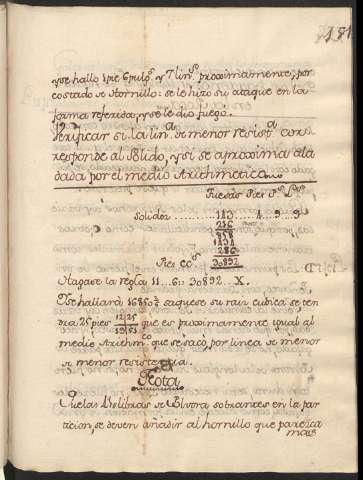 181
y se halló 1 pie 6 pulg.s y 7 lin.s proximamente, por
costado de Hornillo: se le hizo su ataque en la
forma referida, y se le dió fuego.
Verificar si la lin.a de menor resist.a cor-
responde al Sólido, y si se aproxima a la
dada por el medio Arithmetico
Tuesas Pies P.s L.s
Solidos 143 . 4 . 9 . 9
216
858
143
286
Pies cc.s 30892
Hagase la regla 11 . 6 :: 30892 . X.
Y se hallará 16850 2/11 saquese su raiz cubica se ten
drá 25 pies que es proximamente igual al
medio Arithm.co que se sacó, por linea de menor
de menor resistencia.
Nota
Que las libras de Polvora sobrantes en la par
ticion, se deven añadir al hornillo que parezca
mas